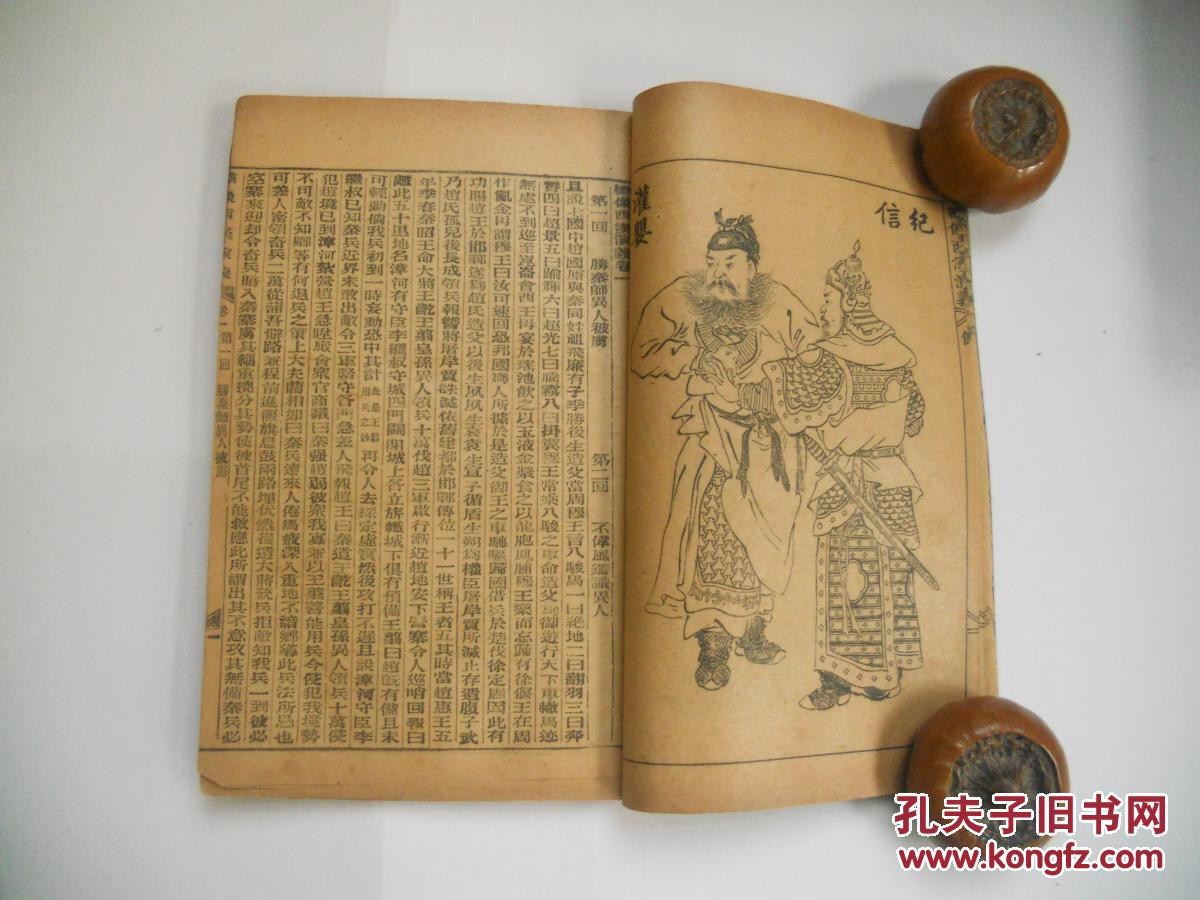 紀信
灌嬰
繡像西漢演義卷一
第一回 勝秦師異人被虜 第二回 不偉風鑑識異人
且說七國中趙國原與秦同姓祖飛廉有子季勝後生造父當周穆王言八駿馬一曰絕地二曰翻羽三曰奔
霄四曰超景五曰踰輝六曰超光七曰騰霧八曰掛翼穆王常乘八駿之車命造父為御遊行天下車轍馬迹
無處不到巡至崑崙會西王母宴於瑤池飲之以玉液金漿食之以龍胞鳳脯穆王樂而忘歸有徐偃王在周
作亂金母謂穆王曰汝可速回恐邦國為人所據於是造父御王之車馳驅歸國借兵於楚伐徐定周因此有
功賜趙王於邯鄲遂為趙氏造父以後生夙夙生衰衰生宣子循盾生朔為權臣屠岸賈所滅止存遺腹子武
乃趙氏孤兒後長成領兵報讐將屠岸賈誅滅依舊建都於邯鄲傳位一十一世稱王者五其時當趙惠王五
年季春秦昭王命大將王齕王翦皇孫異人領兵十萬伐趙三軍啟行漸近趙地安下營寨令人巡哨回報曰
離此五十里地名漳河有守臣李繼叔守城四門關閉城上各立旗幟城下俱有預備王翦曰趙既有備且未
可輕動儻我兵初到一時妄動恐中其計此是王翦用兵之妙再令人去探定虛實然後攻打不遲且說漳河守臣李
繼叔已知秦兵近界未敢出敵令三軍緊守各門急差人飛報趙王曰秦遣王齕王翦皇孫異人領兵十萬侵
犯趙境已到漳河紮營趙王急陞殿會衆官商議曰秦强趙弱彼衆我寡兼以王翦善能用兵今侵犯我境勢
不可敵不知卿等有何退兵之策上大夫藺相如曰秦兵遠來人倦馬疲深入重地不諳鄉導此兵法所忌也
可差人密領奇兵二萬從蒲吾僻路兼程前進偃旗息鼓兩路埋伏然後遣大將統兵拒敵知我兵一到彼必
空寨來迎却令奇兵暗入秦寨虜其輜重撓分其勢使彼首尾不能救應此所謂出其不意攻其無備秦兵必
卷一第一回 勝秦師異人被虜
一
孔夫子旧书网
www.kongfz.com